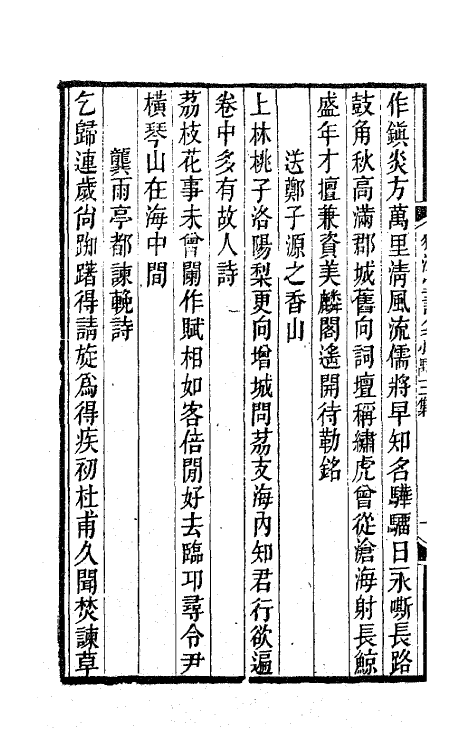 作鎭炎方萬里清風流儒將早知名驊騮日永嘶長路
鼓角秋高滿郡城舊向詞壇稱繡虎曾從滄海射長鯨
盛年才擅兼資美麟閣遙開待勒銘
送鄭子源之香山
上林桃子洛陽梨更向增城問荔支海內知君行欲遍
卷中多有故人詩
荔枝花事未曾闌作賦相如客倍閒好去臨邛尋令尹
橫琴山在海中間
龔雨亭都諫輓詩
乞歸連歲尙踟躇得請旋爲得疾初杜甫久聞焚諫草